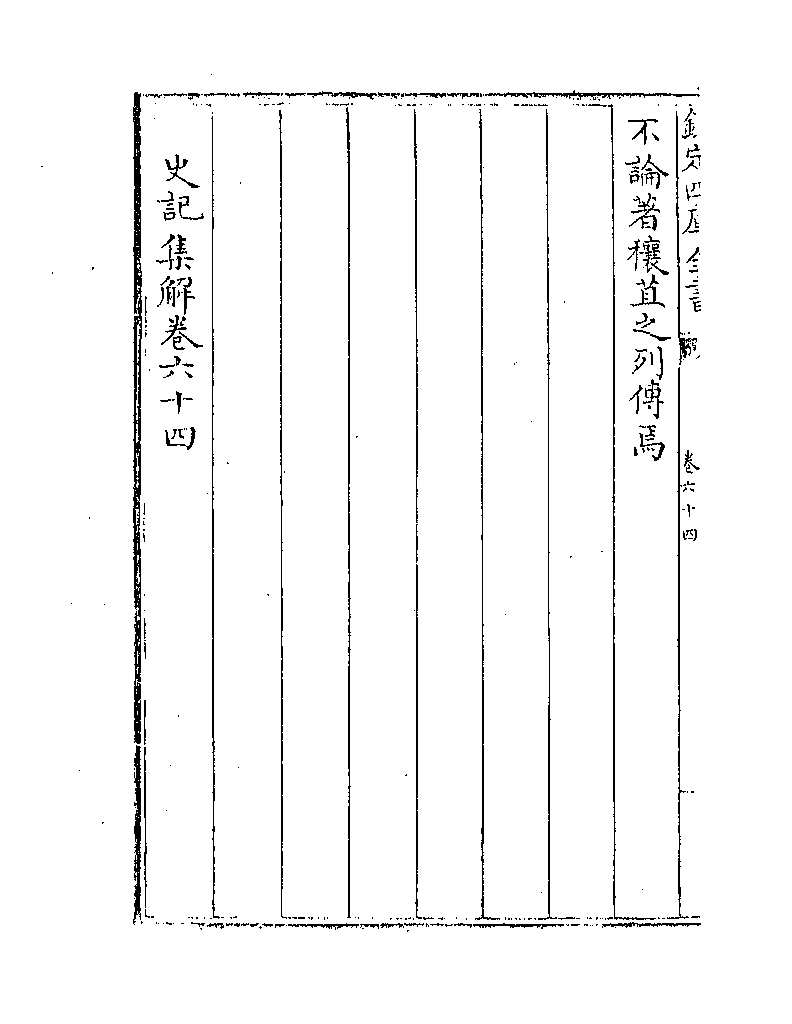 欽定四庫全書
卷六十四
不論著穰苴之列傳焉
史記集解卷六十四